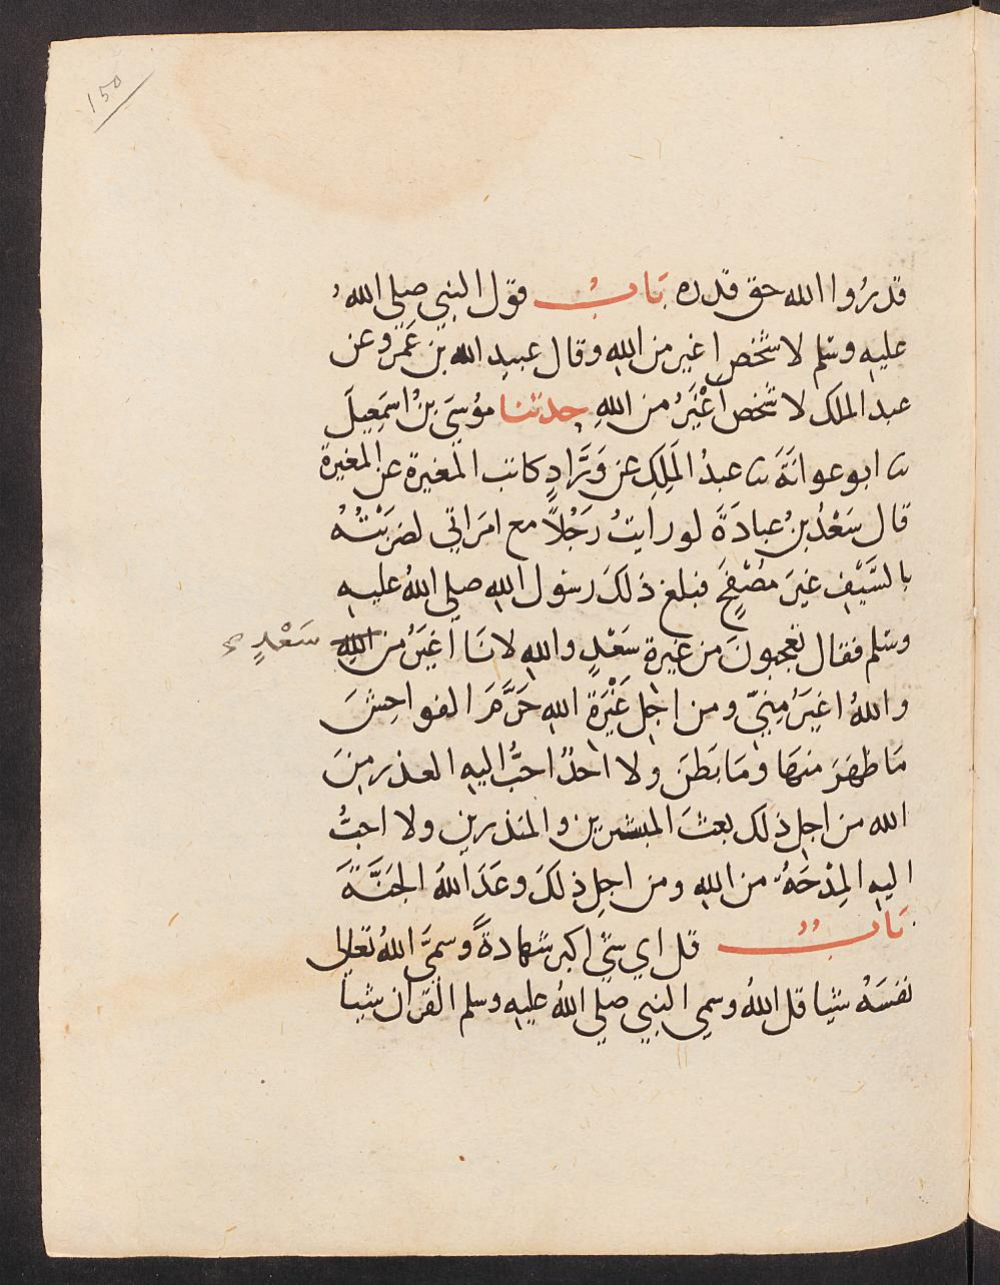 150
قدرُوا الله حق قدره بَابُ قوْل النبي صلى الله
عليهِ وسَلم لا شخص اغير من اللهِ وقال عبيد الله بن عَمرو عن
عبد الملك لا شخص اَغْيَرُ من اللهِ حدثنا موُسىَ بنُ اسمَعِيلَ
ثنا ابو عوانَةَ ثنا عبدُ المَلِكِ عن وَرَّادٍ كاتب المغيرة عن المغيرة
قال سَعْدُ بنُ عبادَةَ لو رايتُ رَجُلاً مع امرَاتي لضرَبْتُهُ
بالسَّيْفِ غيرَ مصُفحٍَ فبلغ ذلكَ رسوُل اللهِ صلى اللهُ عليهِ
وسَلم فقال تعجبونَ من غيرةِ سَعْدٍ واللهِ لانَا اَغيَرُ من اللهِ سَعْدٍ
واللهُ اغيَرُ مِنيّ ومن اجِل غَيْرَةِ اللهِ حَرَّمَ الفواحِشَ
مَا ظهَرَ منهَا ومَا بَطنَ ولا احدُ احَبُّ اليهِ العذر منَ
الله من اجلِ ذلك بعثَ المبشرين والمنذرين ولا احبُّ
اليهِ المِدْحَةُ من اللهِ ومن اجلِ ذلكَ وعَدَ اللهُ الجنَّةَ
بَابُ قل اي شئ اكبر شهادةً وسميَّ اللهُ تعالى
نفسَهُ شيا قل اللهُ وسمى النبي صلى اللهُ عليهِ وسلم القرآن شياً